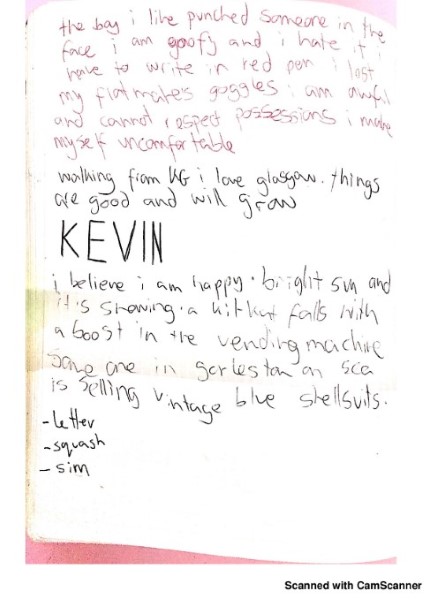 the boy i like punched someone in the
face i am goofy and i hate it i
have to write in red pen i lost
my flatmate's goggles i am awful
and cannot respect possessions i make
myself uncomfortable
walking from KG i love glasgow. things
are good and will grow
KEVIN
i believe i am happy. bright sun and
it's snowing. a kitkat falls with
a boost in the vending machine
some one in gorleston on sea
is selling vintage blue shellsuits.
- letter
- squash
- sim
Scanned with CamScanner